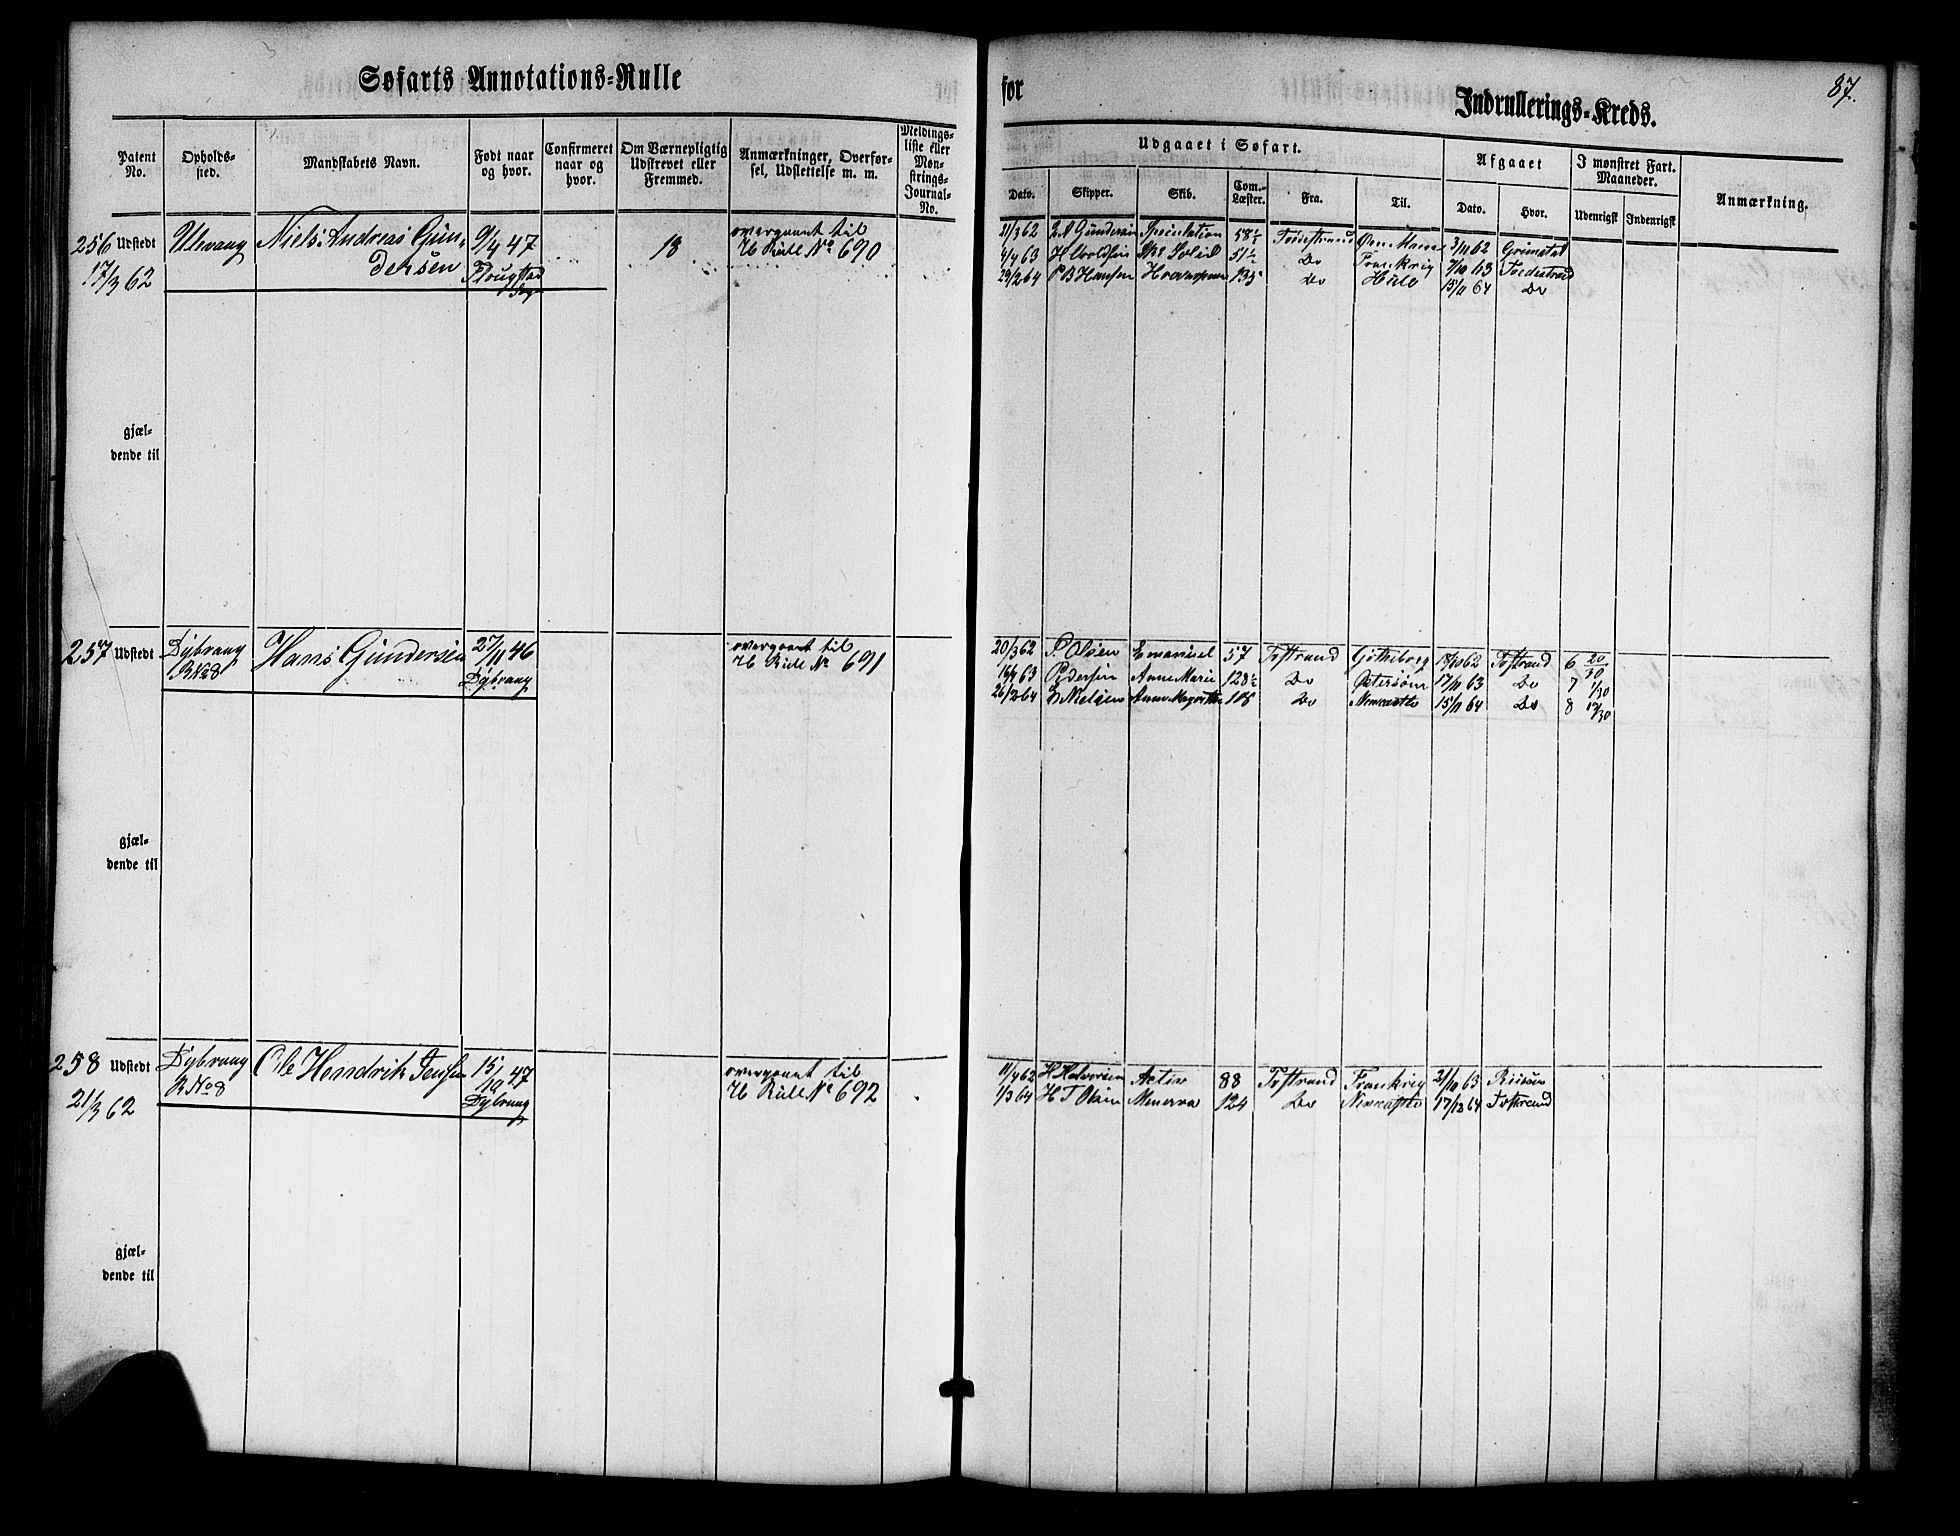 Søfarts Annotations-Rulle
for
Indrullerings-Kreds.
87.
Patent No.
Opholds-sted.
Mandskabets Navn.
Født naar og hvor.
Confirmeret naar og hvor.
Om Værnepligtig Udskrevet eller Fremmed.
Anmærkninger, Overførsel, Udslettelse m. m.
Meldings-liste eller Møn-strings-Journal-No.
Udgaaet i Søfart.
Afgaaet
I mønstret Fart. Maaneder.
Anmærkning.
Dato. Skipper. Skib. Com.-Læster. Fra. Til. Dato. Hvor. Udenrigsk Indenrigsk
256 Udstedt Ulevaag Niels Andreas Gun- 9/4 47 18 overgaaet til
17/3 62 dersen H Rulle No 690
21/3 62 Gundersen Speculation 58½ 3/11 62 Grimstad
4/4 63 51½ Do Frankrig 7/10 63 Tvedestrand
29/2 64 P B Hansen 135 Do 15/11 64 Do
gjæl-
dende til
257 Udstedt Dybvaag Hans Gundersen 27/11 46 overgaaet til
R No 8 Dybvaag H Rulle No 691
20/3 62 P. Olsen Emanuel 57 Tvstrand Gøtheborg 62 Tvstrand 6 20/30
63 Pedersen Anne Marie 128½ Do Østersøen 17/11 63 Do 7 1/30
26/2 64 E Nielsen 108 Do Newcastle 15/11 64 Do 8 19/30
gjæl-
dende til
258 Udstedt Dybvaag Ole Hendrik Jensen 15/10 47 overgaaet til
21/3 62 R No 8 Dybvaag H Rulle No 692
11/4 62 H Halvorsen Activ 88 Tvstrand Frankrig 21/10 63
1/3 64 H T Olsen Minerva 124 Do Newcastle 17/12 64 Tvstrand
gjæl-
dende til